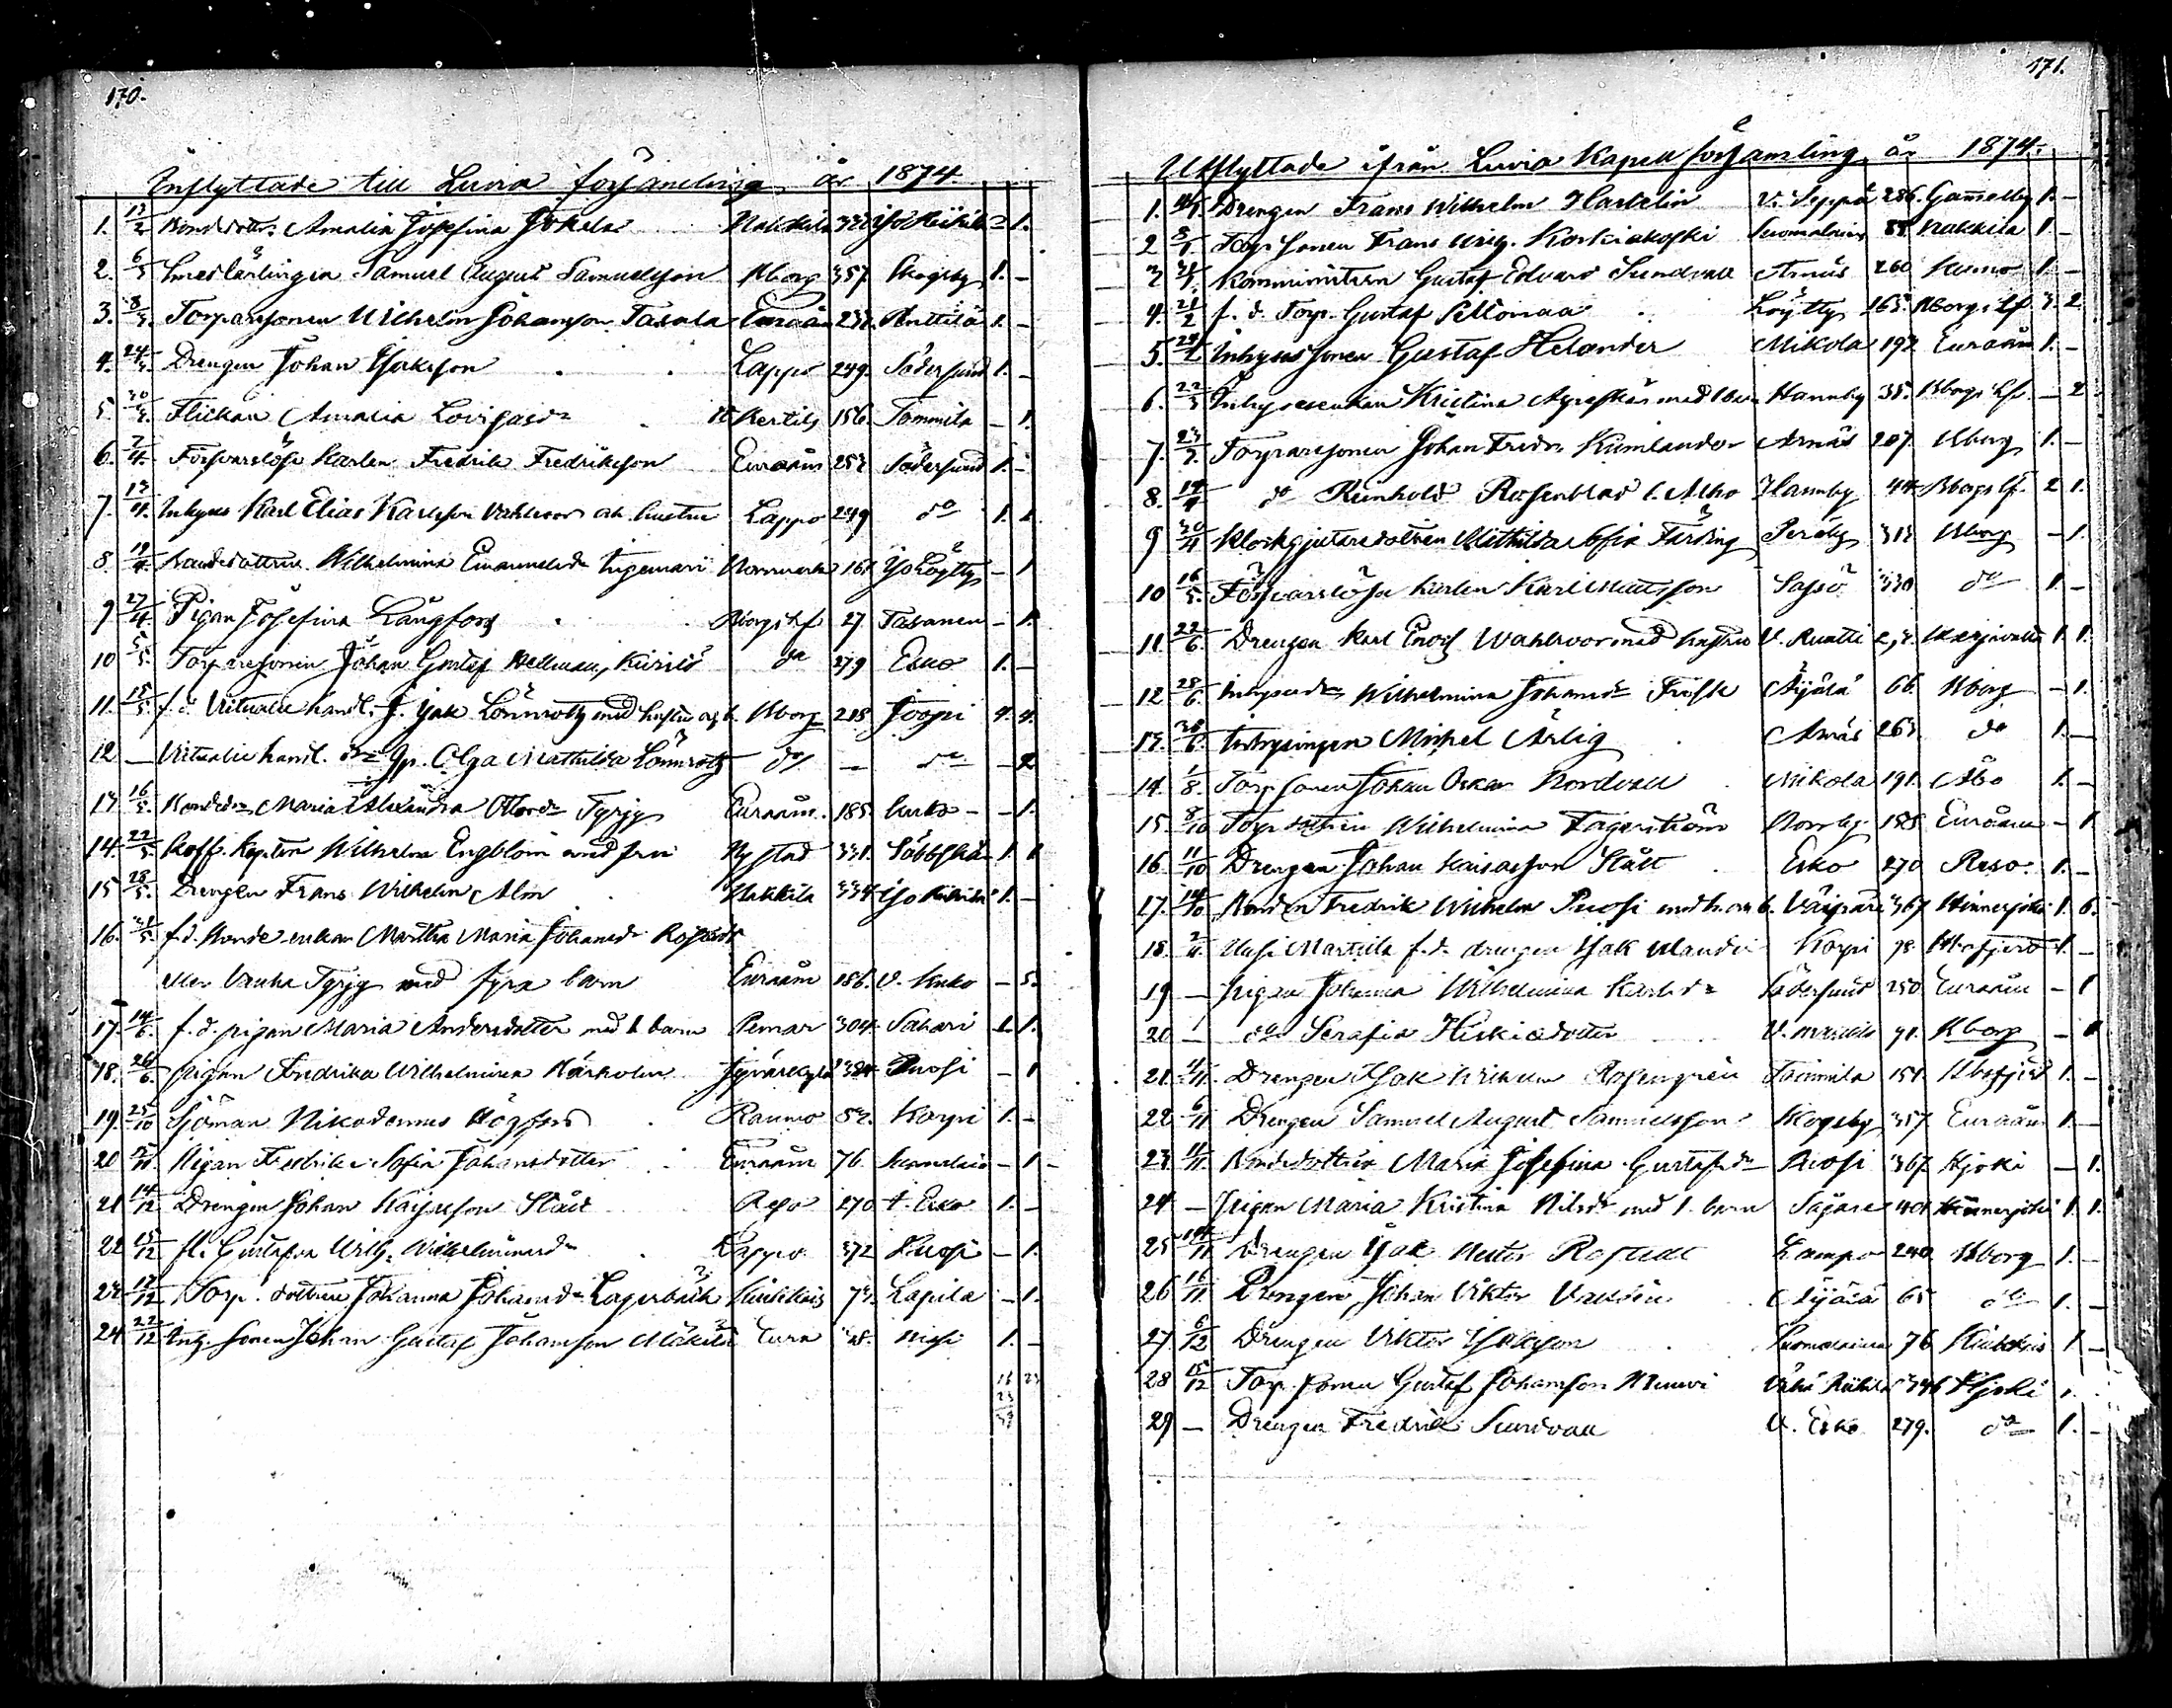 170.
Inflyttade till Luvia församling år 1874.
1. 13/2 Bonddottr. Amalia Josefina Jokela Nakkila Iso Heikilä - 1.
2. 6/3 Smedlärlingen Samuel August Samuelsson Kborg 357. Skogsby 1. -
3. 8/3. Torparesonen Wilhelm Johansson Tasala Euraåm 232. Anttila 1. -
4. 24/3 Drengen Johan Isaksson Lappo 249. Södersund 1. -
5. 30/3. Flickan Amalia Lovisasdr 156. Tommila - 1.
6. 2/4. Försvarslöse Karlen Fredrik Fredriksson Euraåm 252 Södersund 1. -
7. 13/4. Inhyses Karl Elias Karlsson Vahlroos och hustru Lappo 249 do 1. 1.
8. 19/4. Bondedottren Wilhelmina Emanuelsdr Ingemari Norrmark 161 Iso Löytty - 1
9 27/4. Pigan Josefina Långfors Bborgs lf 27 Tasanen - 1.
10 5/5. Torparesonen Johan Gustaf Hellman, do 279 Esko 1. -
11. 15/5. f.d. Victualie handl. J. Isak Lönnroth med hustru och b. Bborg 218. Joopi 4. 4.
12 — Victualie handl. Olga Mathilda Lönnroth do — do - 2
13 16/5. Bondedr Maria Alexandra Tyrjy Euraåm. 185. Unko - - 1.
14. 22/5. Koff. Kapten Wilhelm Engblom med fru Nystad 331. Säbbskär 1. 1
15 28/5. Drengen Frans Wilhelm Alm Nakkila 334 Iso Heikilä 1. -
16. 31/5. f.d. Bonde enkan Martha Maria Johansdr
eller Vanha Tyrjy med fyra barn Euraåm 186. V. Unko - 5.
17. 14/6. f.d. pigan Maria Andersdotter med 1 barn Pemar 304. Sahari 1. 1.
18. 26/6. pigan Fredrika Wilhelmina 324. Puosi - 1
19. 25/10 Sjöman Nikodemus Högfors Raumo 82. Korpi 1. -
20 Pigan Fredrika Sofia Johansdotter Euraåm 76. - 1 -
21 14/12 Drengen Johan Kaisasson Stålt Reso 270 t. Esko 1. -
22 15/12 fl. Gustafva Wilh. Wilhelminasdr Lappo 372 Puosi - 1.
23 17/12 Torp. dottren Johanna Johansdr Lagerbäck Kiukkais 73. Lapila - 1.
24 22/12 Inh. sonen Johan Gustaf Johansson Mäkelä Eura 1. -
171.
Utflyttade ifrån Luvia Kapell församling år 1874.
1. Drengen Frans Wilhelm Hartelin V. Seppä 286. Gamelby 1. -
2 Torp sonen Frans Wilh. Koskiakoski Suomalain 85. Nakkila 1. -
3 Komministern Gustaf Edvard Sundvall Arnäs 260 Kumo 1. -
4. 21/2 f.d. Torp. Gustaf Peltomaa Löytty 165. Bborgs lf. 3 2
5. 28/2 Inhyses sonen Gustaf Helander Mikola 192 Euraåm 1. -
6. 22/3 Inhysesenkan Kristina med 1 barn Hannby 35. Bborgs lf. - 2
7. Torparesonen Johan Fredr. Kumlander Arnäs 207. Kborg 1. -
8. 14/4 do Reinhold Rosenblad Hannby 44. Bborgs lf. 2 1.
9 30/4 Klockgjutaredottren Mathilda Sofia Färding Peräby 313 Bborg - 1.
10 16/5. Försvarslöse karlen Karl Mattsson Sassö 330 do 1. -
11 22/6. Drengen Karl Enoch Wahlroos med hustru V. Ruotti 1. 1.
12 28/6. Inhysesdr Wilhelmina Johansdr Frisk Äijälä 66. Bborg - 1.
13. 28/6. Inhysingen Mickel Ärlig Arnäs 263. do 1. -
14. 1/8. Torp sonen Johan Oskar Nordvall Mikola 191. Åbo 1. -
15. 8/10 Torp dottren Wilhelmina Fagerström Norrby 188 Euraåm - 1
16. 11/10 Drengen Johan Kaisasson Stålt Esko 270 Reso. 1. -
17. 14/10 Bonden Fredrik Wilhelm Puosi med h. och b. 367 Hinnerjoki 1. 6.
18. 2/11. Uusi Marttila f.d. drengen Isak Korpi 78. 1. -
19 — pigan Johanna Wilhelmina Karlsdr Södersund 250 Euraåm - 1
20 — do Serafia Hiskiasdotter 71. Kborg - 1
21 Drengen Isak Wilhelm Rosengren Tommila 151. 1. -
22 6/11 Drengen Samuel August Samuelsson Skogsby 357 Euraåm 1. -
23. Bondedottren Maria Josefina Gustafsdr Puosi 367. Hjoki - 1.
24 — Pigan Maria Kristina Nilsdr med 1. barn 401 Hinnerjoki 1. 1.
25 Drengen Isak Rostedt Lampo 240. Bborg 1. -
26 16/11. Drengen Johan Viktor Äijälä 65 do 1. -
27. 6/12 Drengen Viktor Isaksson Suomalainen 76 Kiukkais 1 -
28 15/12 Torp. sonen Gustaf Johansson 346 Hjoki 1.
29 — Drengen Fredrik Sundvall U. Esko 279. do 1. -